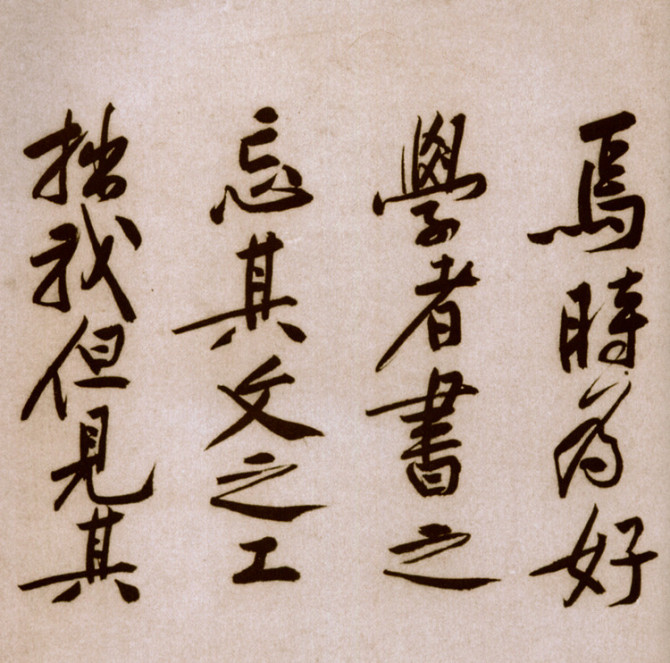 焉時為好
學者書之
忘其文之工
拙我但見其